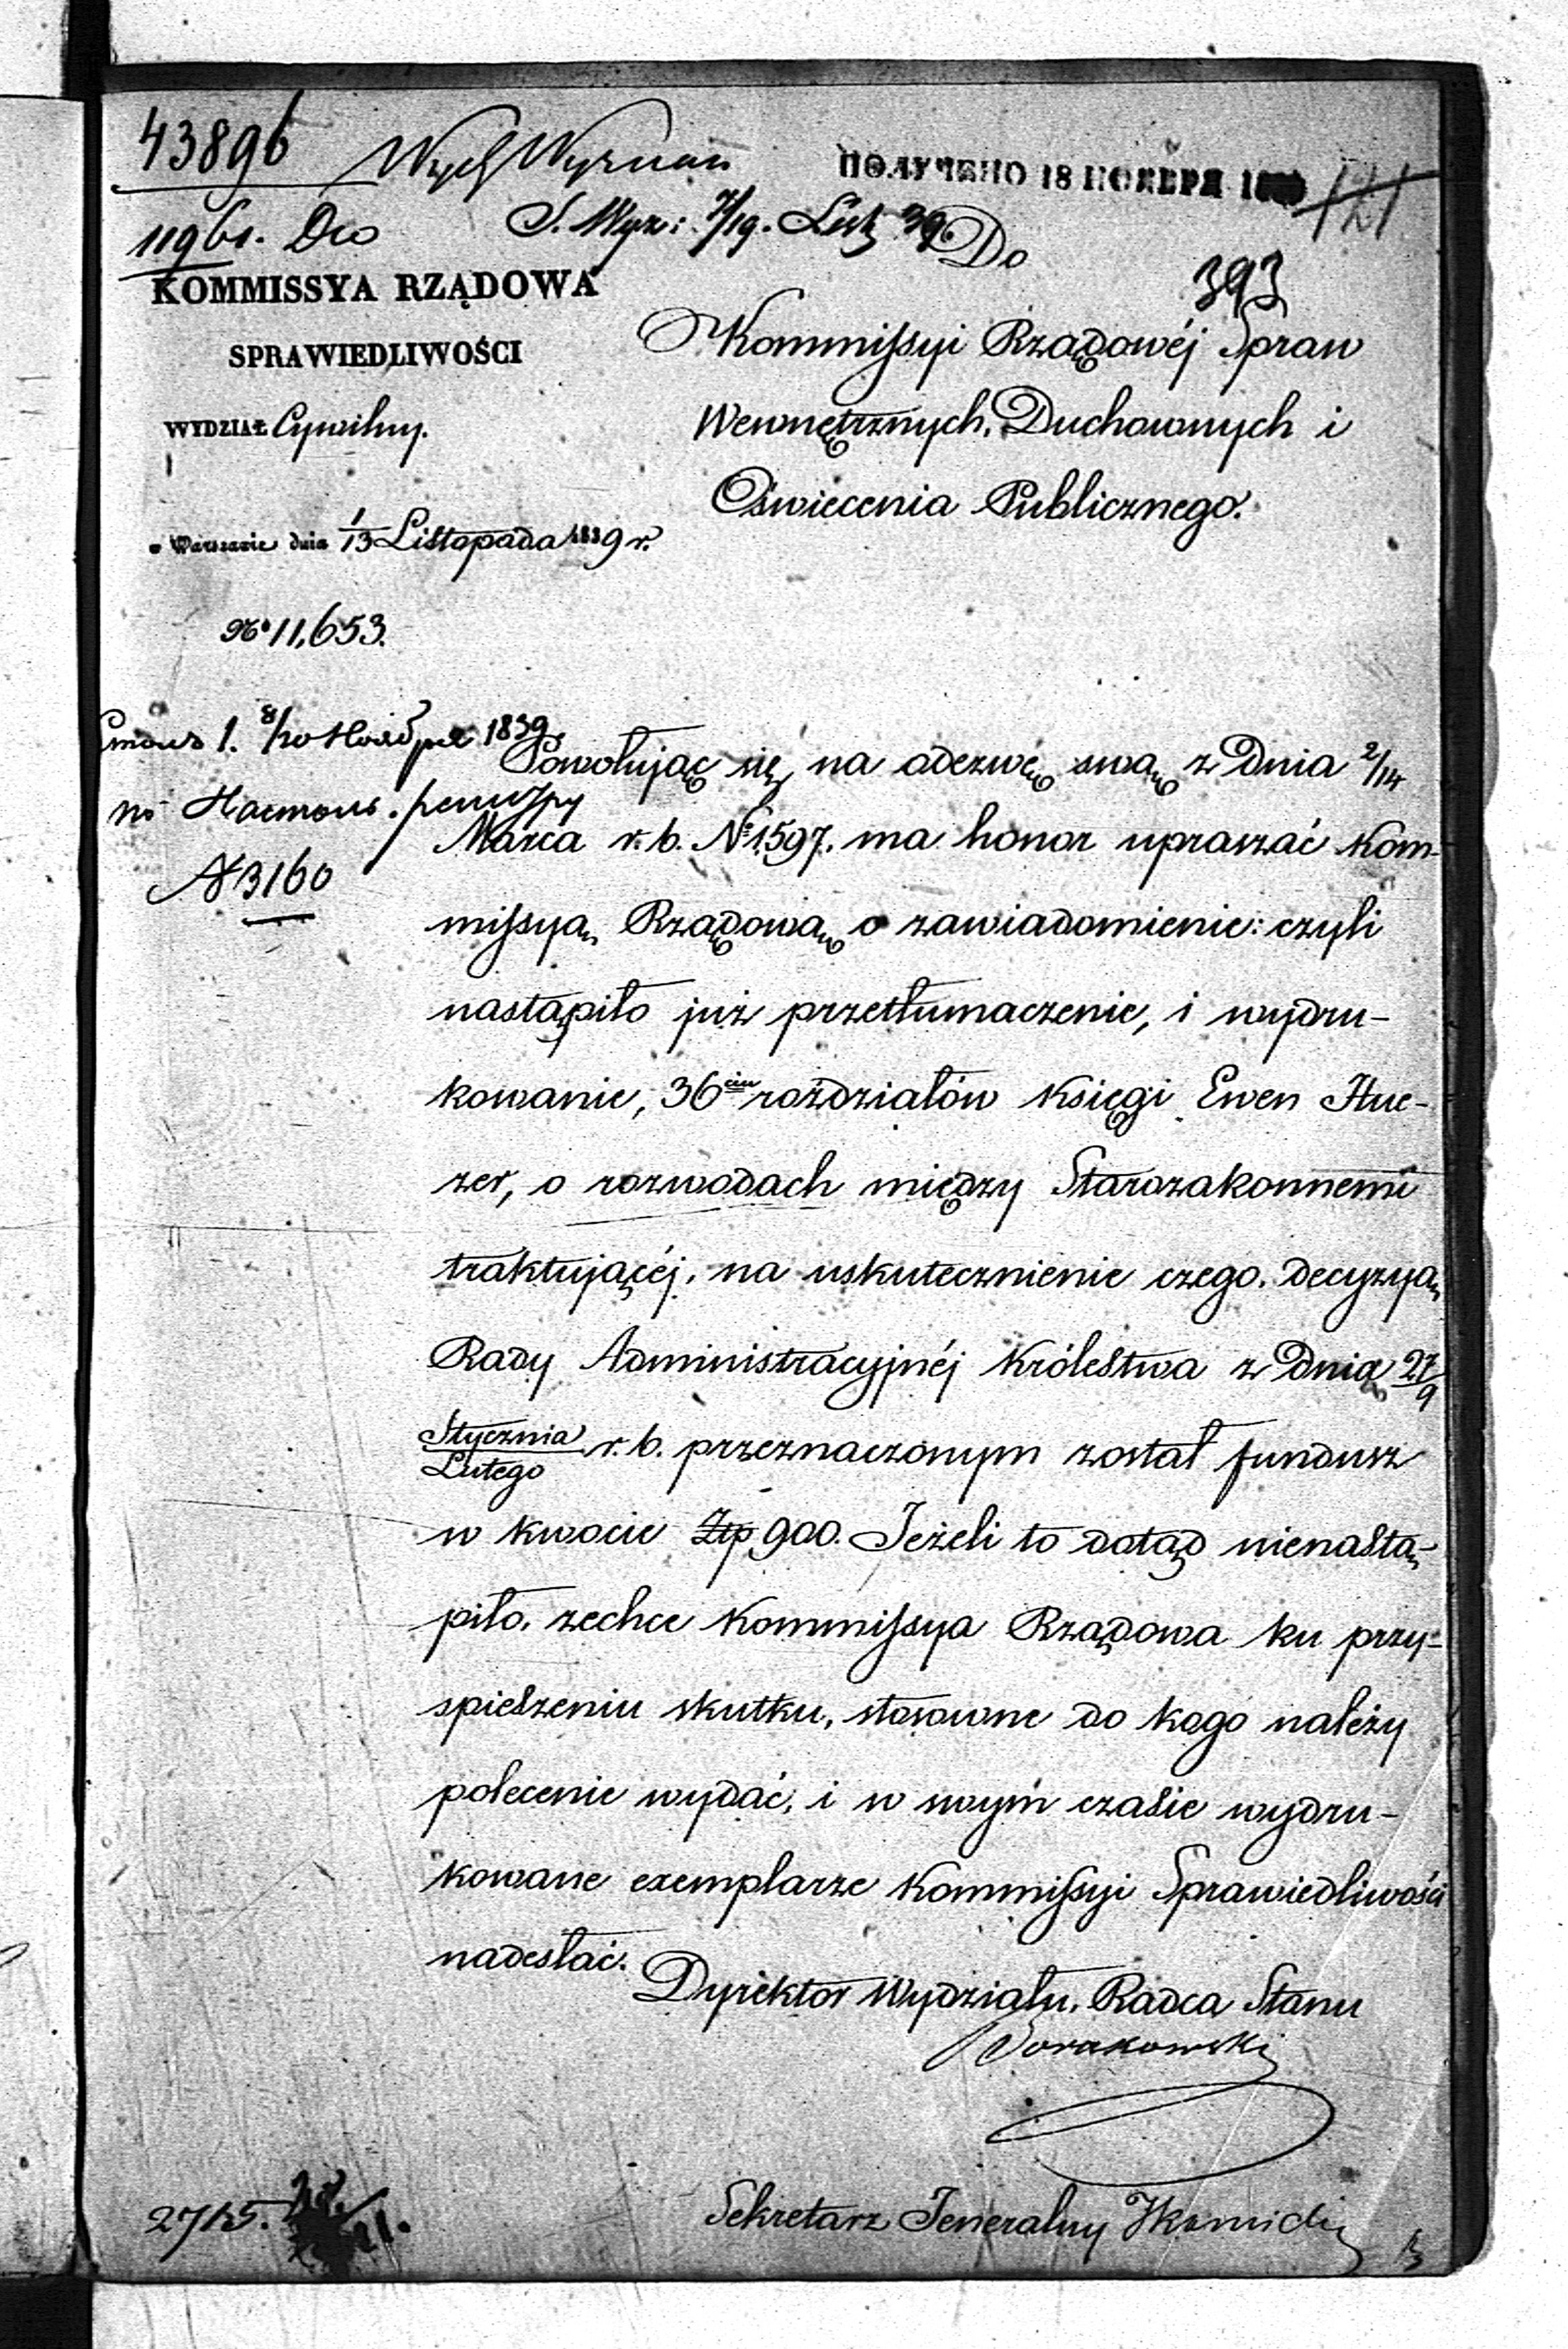 43896
ПОЛУЧЕНО 18 НОЯБРЯ
121
11961. Do
S. Wyz: 7/19. List 39.
393
KOMMISSYA RZĄDOWA
SPRAWIEDLIWOŚCI
WYDZIAŁ Cywilny.
w Warszawie dnia 1/13 Listopada 1839 r.
No 11,653.
Do
Kommissyi Rządowéj Spraw
Wewnętrznych, Duchownych i
Oświecenia Publicznego.
1839
N 3160
Powołując się na odezwę swą z Dnia 2/14
Marca r. b. No 1597. ma honor upraszać Kom-
missyą Rządową o zawiadomienie: czyli
nastąpiło już przetłumaczenie, i wydru-
kowanie, 36ciu rozdziałów księgi Ewen Hue-
zer, o rozwodach między Starozakonnemi
traktującéj, na uskutecznienie czego, decyzyą
Rady Administracyjnéj Królestwa z Dnia 27/9
Stycznia/Lutego r. b. przeznaczonym został fundusz
w kwocie Złp 900. Jeżeli to dotąd nienastą-
piło, zechce Kommissya Rządowa ku przy-
spieszeniu skutku, stosowne do kogo należy
polecenie wydać, i w swym czasie wydru-
kowane exemplarze Kommissyi Sprawiedliwości
nadesłać.
Dyrektor Wydziału, Radca Stanu
Sekretarz Jeneralny